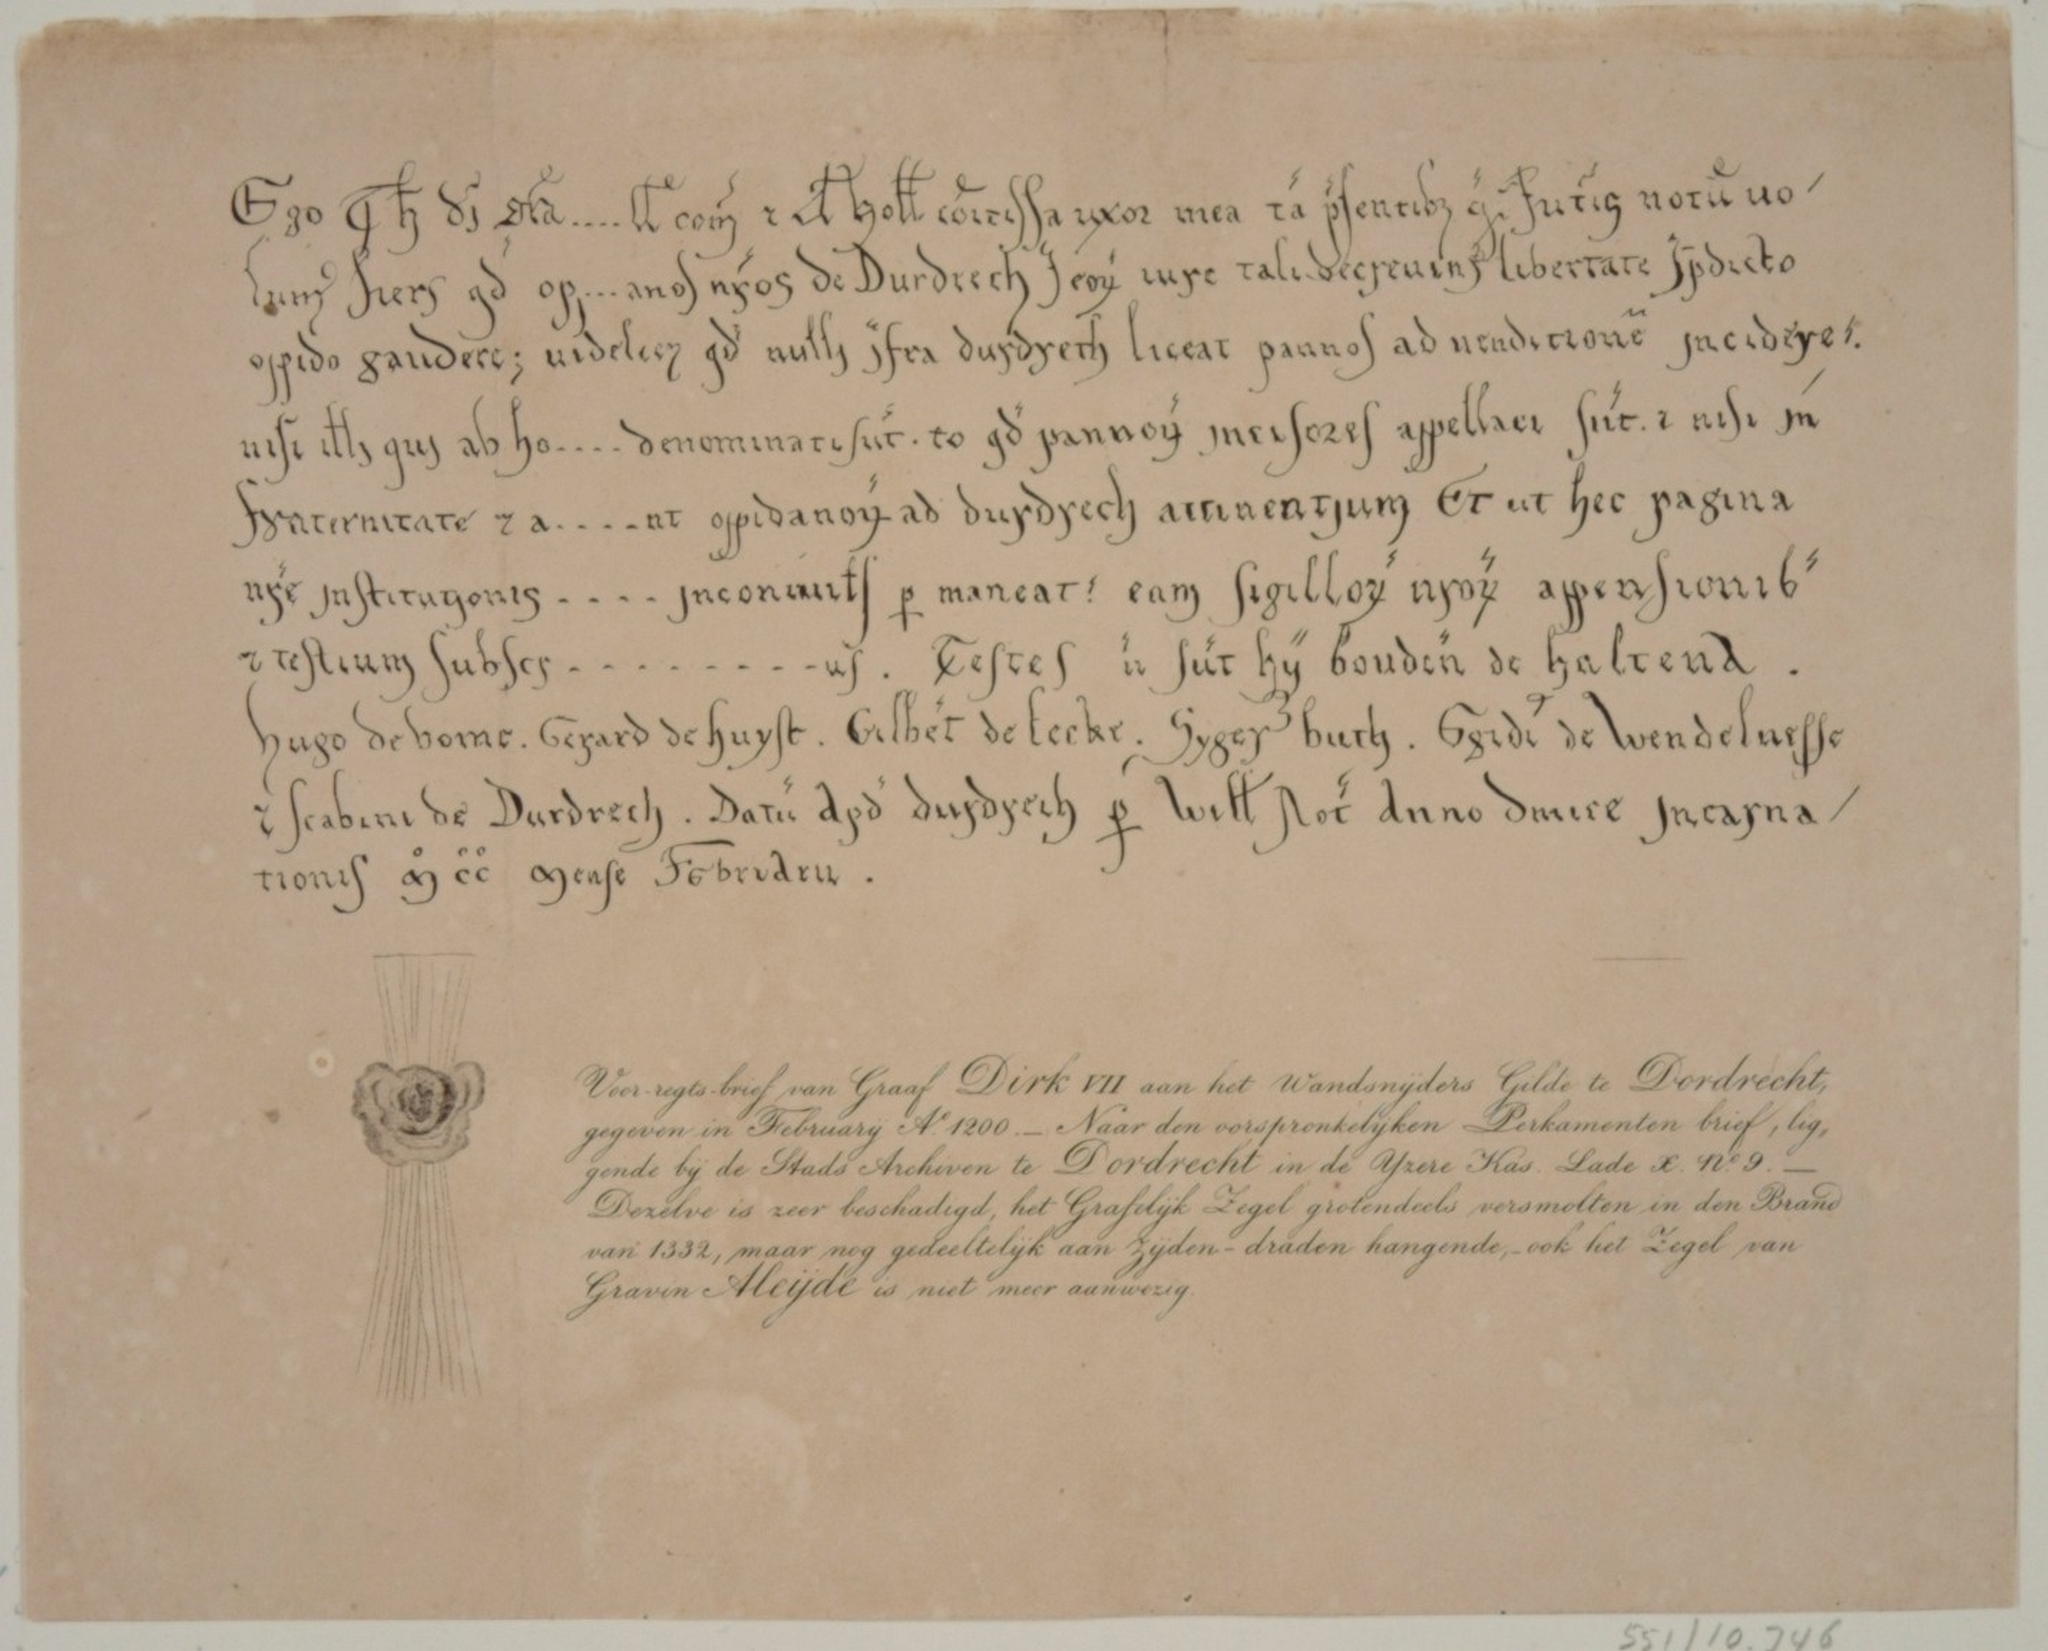 Ego Th di gra.... ll com ⁊ A holl comitissa uxor mea tā psentibz q̄ futuis notū uo/
lum oppid...anos nros de Durdrech eoꝝ iure tali decreuim libertate I pdicto
oppido gaudere; uidelicz qd nulli ifra durdreth liceat pannos ad uenditionē incidere.
nisi illis qui ab ho.... denominati sūt. to qd pannoꝝ incisores appellati sūt. ⁊ nisi in
fraternitate ⁊ a....nt oppidanoꝝ ad durdrech attinentium Et ut hec pagina
nre institutionis .... inconuuls p maneat: eam sigilloꝝ nroꝝ appensionib
⁊ testium subscr .........us. Testes ū sūt hij bouden de haltena.
hugo de vorne. Gerard de hurst. Gilbet de Lecke. Syger buch. Egidi de Wendelnesse
⁊ scabini de Durdrech. Datū Apd durdrech p Will Not Anno dmice Incarna/
tionis M CC Mense Februarii.
Voor-regts-brief van Graaf Dirk VII aan het Wandsnyders Gilde te Dordrecht,
gegeven in February Aº 1200.— Naar den oorspronkelyken Perkamenten brief, lig,
gende bij de Stads Archiven te Dordrecht in de Yzere Kas. Lade X. Nº 9.—
Dezelve is zeer beschadigd, het Grafelijk Zegel grotendeels versmolten in den Brand
van 1332, maar nog gedeeltelijk aan Zyden-draden hangende,- ook het Zegel van
Gravin Aleijde is niet meer aanwezig.
551/10.746